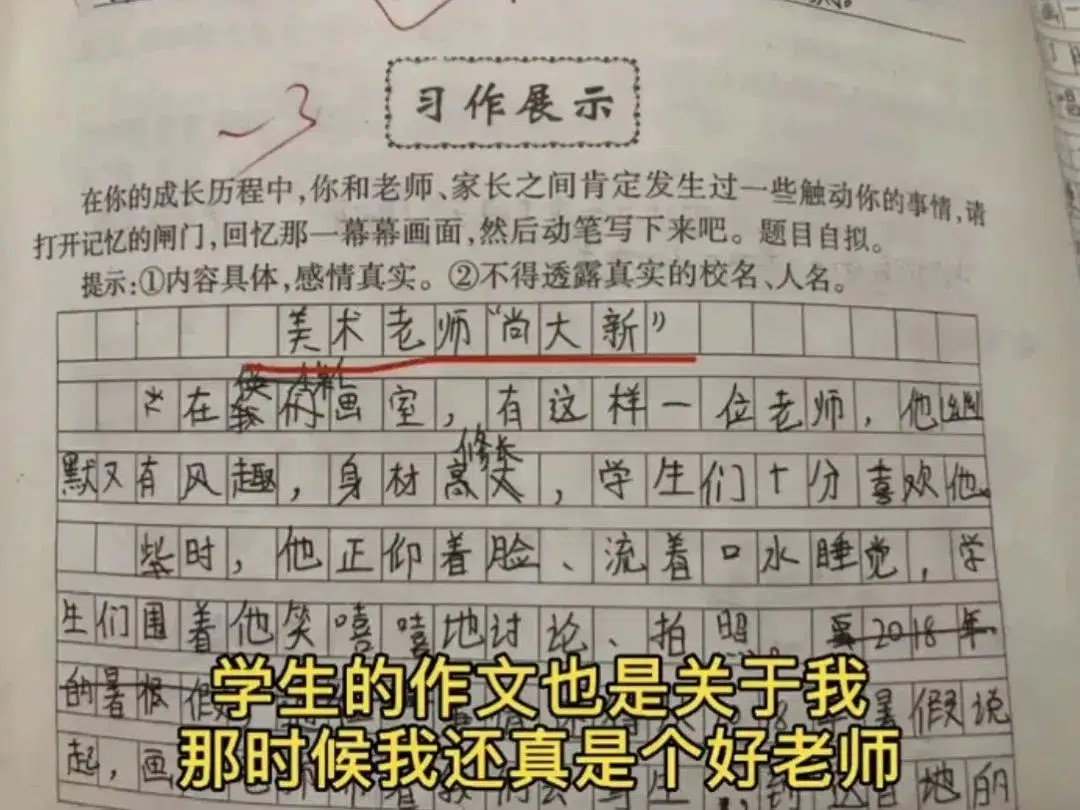 习作展示
在你的成长历程中,你和老师、家长之间肯定发生过一些触动你的事情,请
打开记忆的闸门,回忆那一幕幕画面,然后动笔写下来吧。题目自拟。
提示:①内容具体,感情真实。②不得透露真实的校名、人名。
美术老师“尚大新”
在 们画室,有这样一位老师,他幽
修长
默又有风趣,身材高大,学生们十分喜欢他。
此时,他正仰着脸、流着口水睡觉,学
生们围着他笑嘻嘻地讨论、拍照 2018年
的暑假 暑假说
起,画
学生的作文也是关于我
那时候我还真是个好老师
地的